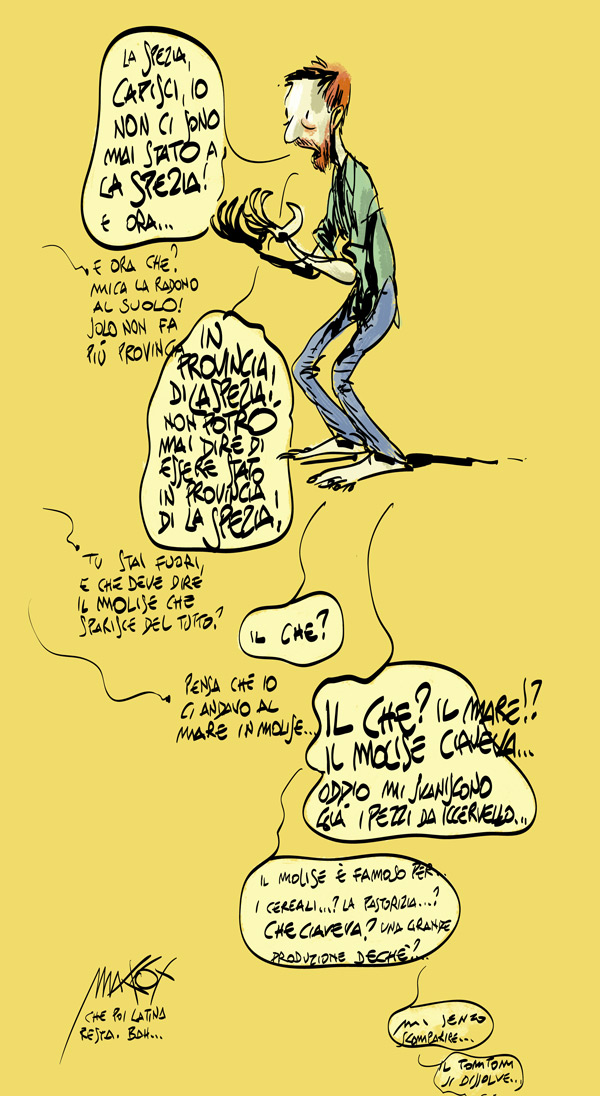 LA SPEZIA,
CAPISCI, IO
NON CI SONO
MAI STATO A
LA SPEZIA!
E ORA...
E ORA CHE?
MICA LA RADONO
AL SUOLO!
SOLO NON FA
PIÙ PROVINCIA
IN
PROVINCIA,
DI LA SPEZIA!
NON POTRÒ
MAI DIRE DI
ESSERE STATO
IN PROVINCIA
DI LA SPEZIA!
TU STAI FUORI,
E CHE DEVE DIRE
IL MOLISE CHE
SPARISCE DEL TUTTO?
IL CHE?
PENSA CHE IO
CI ANDAVO AL
MARE IN MOLISE...
IL CHE? IL MARE!?
IL MOLISE CIAVEVA...
ODDIO MI SVANISCONO
GIÀ I PEZZI DA ICCERVELLO...
IL MOLISE È FAMOSO PER...
I CEREALI...? LA PASTORIZIA...?
CHE CIAVEVA? UNA GRANDE
PRODUZIONE DECHÈ?...
MI SENZO
SCOMPARIRE...
IL TOMTOM
SI DISSOLVE...
MAKKOX
CHE POI LATINA
RESTA. BOH...